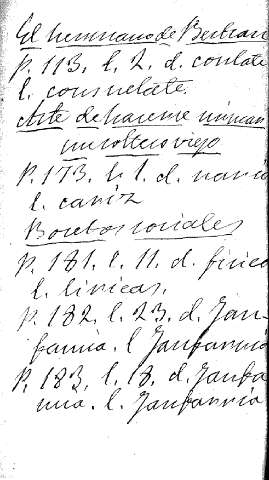 El hermano de Bertran
P. 113, l. 2. d. conlate
l. consuelate.
Arte de hacerme
un soltero viejo
P. 173, l. 1. d.
l. cariz
Bocetos sociales
P. 181. l. 11. d. fisico
l. liricas.
P. 182, l. 23. d. Jau-
fannia. l Jauparnia
P. 183, l. 18, d. Jaupa
nia. l. Jauparnia